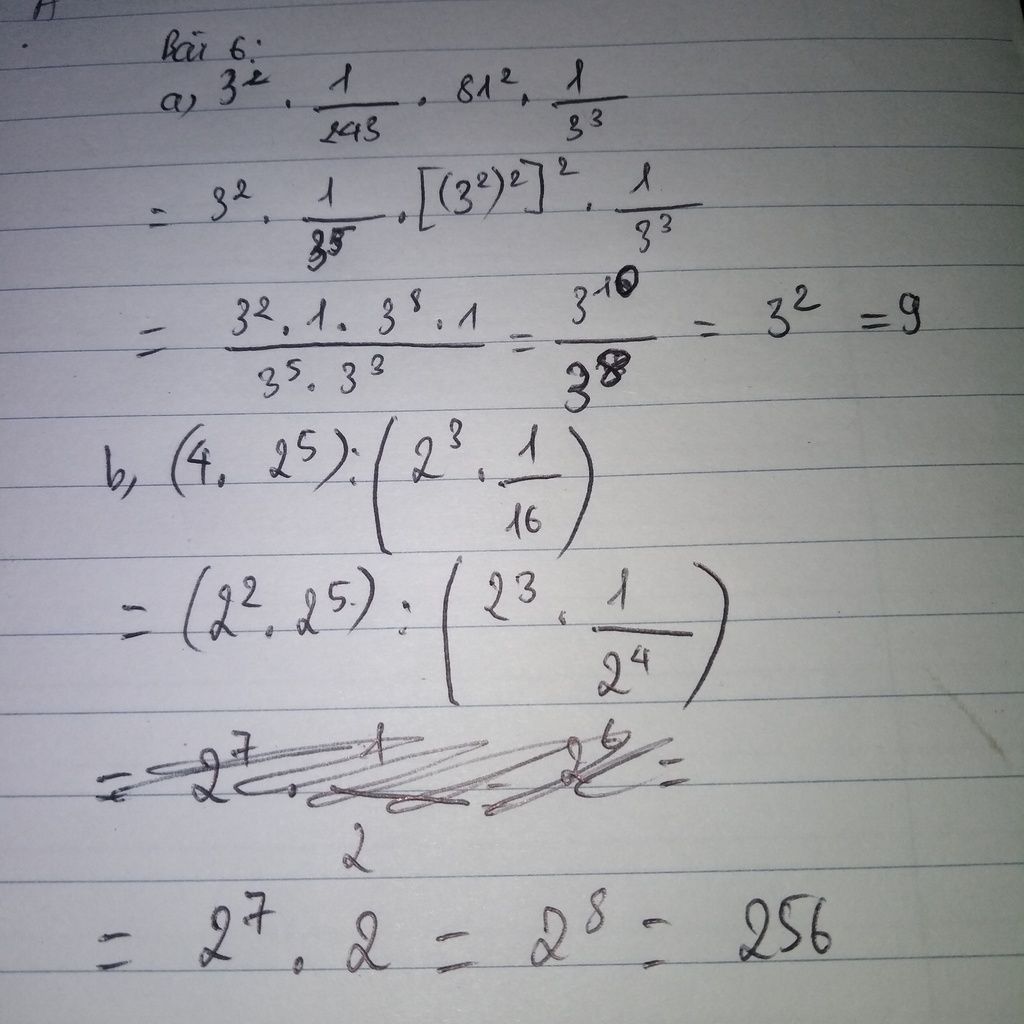 Bài 6:
a, 3² . 1/243 . 81² . 1/3³
= 3² . 1/3⁵ . [(3²)²]² . 1/3³
= 3² . 1 . 3⁸ . 1 / 3⁵ . 3³ = 3¹⁰/3⁸ = 3² = 9
b, (4 . 2⁵) : (2³ . 1/16)
= (2² . 2⁵) : (2³ . 1/2⁴)
= 2⁷ . 1/2 = 2⁶ =
= 2⁷ . 2 = 2⁸ = 256